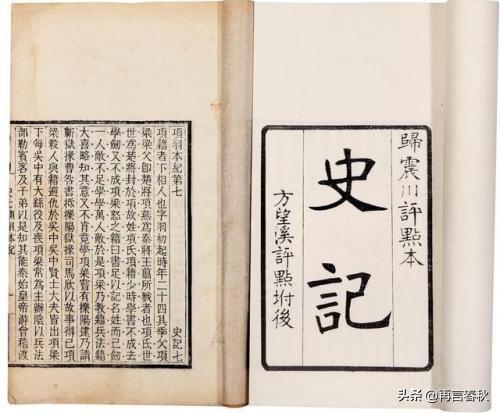 歸震川評點本
史記
方望溪評點坿後
項羽本紀第七 史記七
項籍者下相人也字羽初起時年二十四其季父項
梁梁父即楚將項燕為秦將王翦所戮者也項氏世
世為楚將封於項故姓項氏項籍少時學書不成去
學劍又不成項梁怒之籍曰書足以記名姓而已劍
一人敵不足學學萬人敵於是項梁乃教籍兵法籍
大喜略知其意又不肯竟學項梁嘗有櫟陽逮乃請
蘄獄掾曹咎書抵櫟陽獄掾司馬欣以故事得已項
梁殺人與籍避仇於吳中吳中賢士大夫皆出項梁
下每吳中有大繇役及喪項梁常為主辦陰以兵法
部勒賓客及子弟以是知其能秦始皇帝游會稽渡
头条 @再言春秋